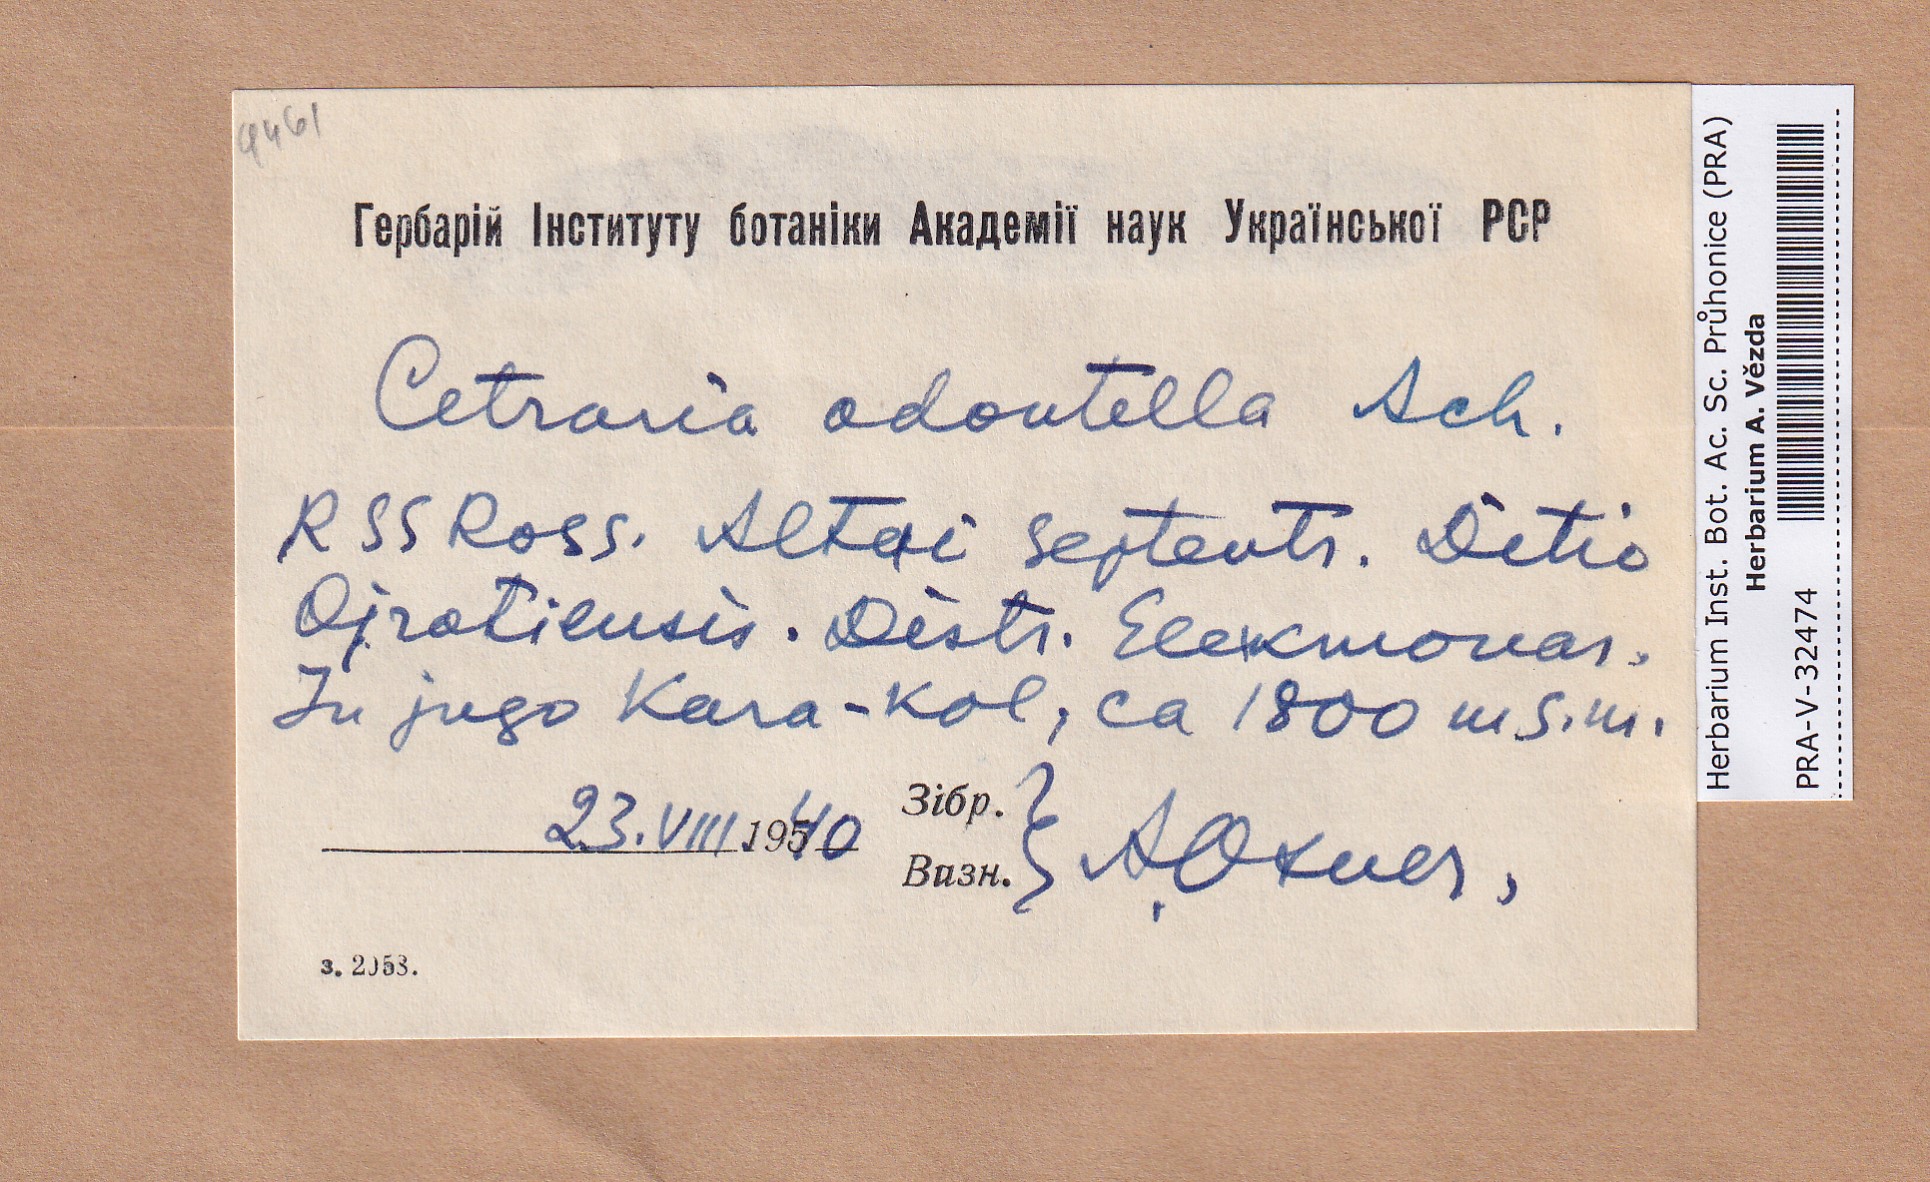 9461
Гербарій Інституту ботаніки Академії наук Української РСР
Cetraria odontella Ach.
RSS Ross. Altai septentr. Ditio
Ojrotiensis. Distr. Elekmonar.
In jugo Kara-kol, ca 1800 m s.m.
23.VIII.1940
Зібр.
Вазн.
} A. Oxner,
з. 2053.
Herbarium Inst. Bot. Ac. Sc. Průhonice (PRA)
Herbarium A. Vězda
PRA-V-32474